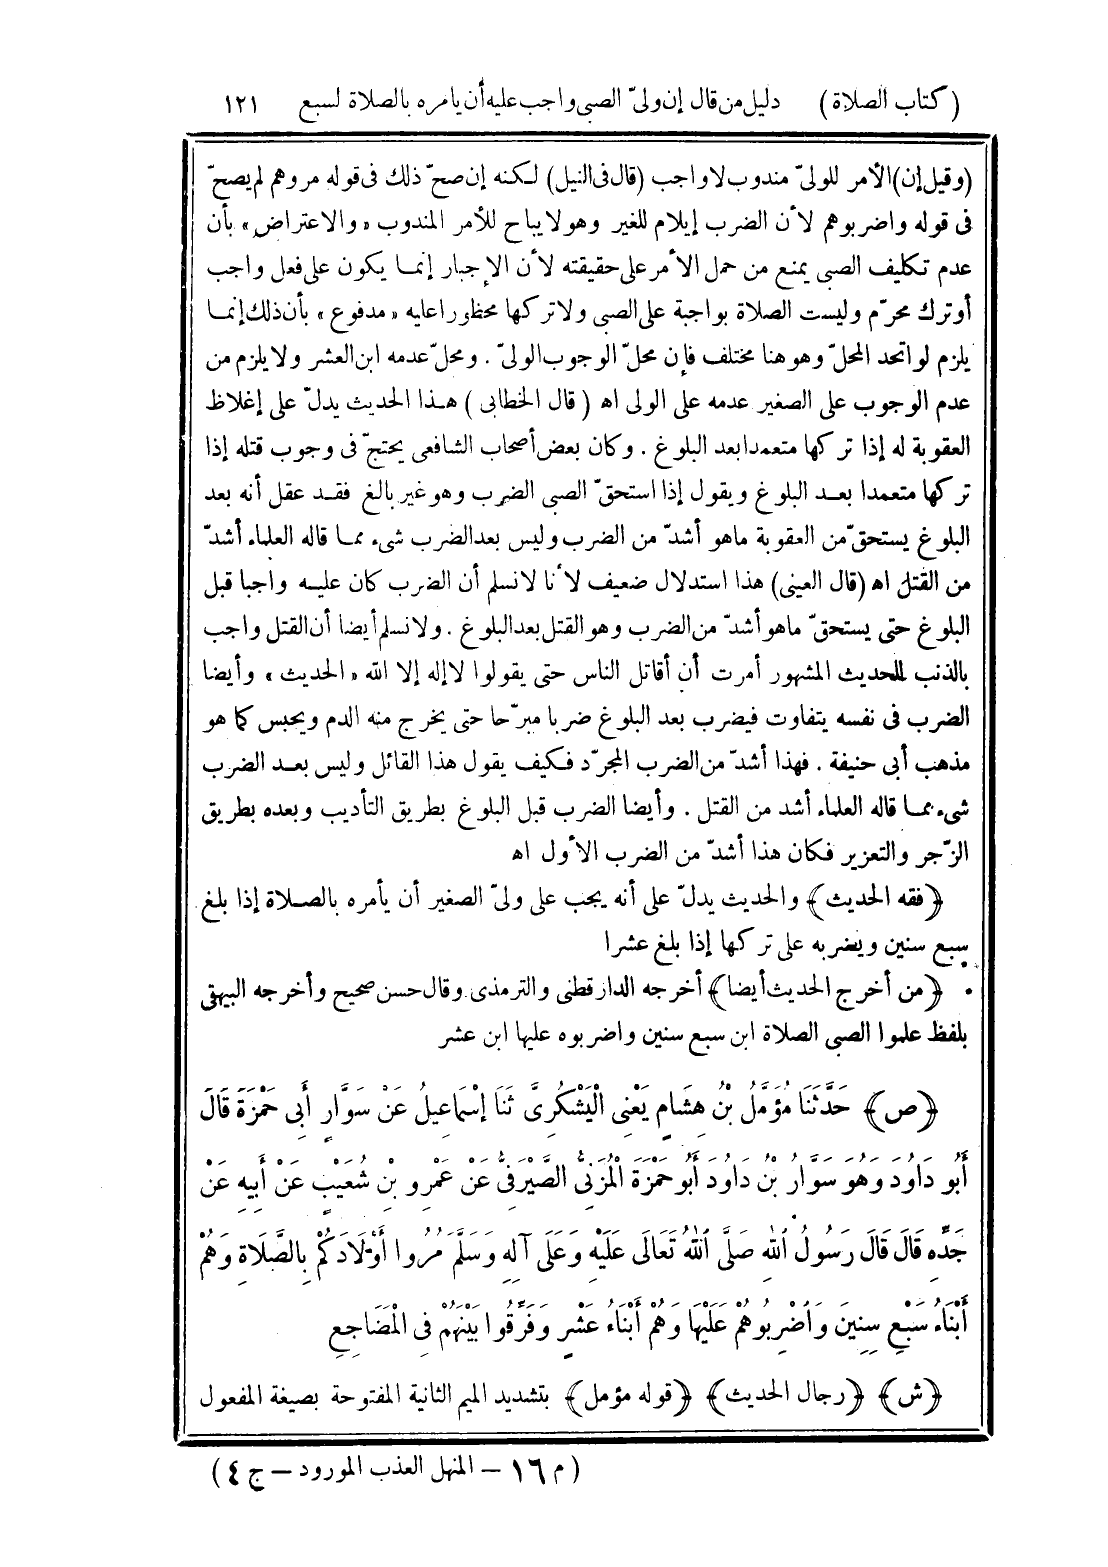 (كتاب الصلاة) دليل من قال إن ولىّ الصبى واجب عليه أن يأمره بالصلاة لسبع ١٢١
(وقيل إن) الأمر للولىّ مندوب لا واجب (قال فى النيل) لكنه إن صحّ ذلك فى قوله مروهم لم يصحّ
فى قوله واضربوهم لأن الضرب إيلام للغير وهو لا يباح للأمر المندوب «والاعتراض» بأن
عدم تكليف الصبى يمنع من حمل الأمر على حقيقته لأن الإجبار إنما يكون على فعل واجب
أو ترك محرّم وليست الصلاة بواجبة على الصبى ولا تركها محظورا عليه «مدفوع» بأن ذلك إنما
يلزم لو اتحد المحلّ وهو هنا مختلف فإن محلّ الوجوب الولىّ . ومحلّ عدمه ابن العشر ولا يلزم من
عدم الوجوب على الصغير عدمه على الولى اه (قال الخطابى) هذا الحديث يدلّ على إغلاظ
العقوبة له إذا تركها متعمدا بعد البلوغ . وكان بعض أصحاب الشافعى يحتجّ فى وجوب قتله إذا
تركها متعمدا بعد البلوغ ويقول إذا استحقّ الصبى الضرب وهو غير بالغ فقد عقل أنه بعد
البلوغ يستحقّ من العقوبة ماهو أشدّ من الضرب وليس بعد الضرب شىء مما قاله العلماء أشدّ
من القتل اه (قال العينى) هذا استدلال ضعيف لأنا لا نسلم أن الضرب كان عليه واجبا قبل
البلوغ حتى يستحقّ ماهو أشدّ من الضرب وهو القتل بعد البلوغ . ولا نسلم أيضا أن القتل واجب
بالذنب للحديث المشهور أمرت أن أقاتل الناس حتى يقولوا لا إله إلا الله «الحديث» وأيضا
الضرب فى نفسه يتفاوت فيضرب بعد البلوغ ضربا مبرّحا حتى يخرج منه الدم ويحبس كما هو
مذهب أبى حنيفة . فهذا أشدّ من الضرب المجرّد فكيف يقول هذا القائل وليس بعد الضرب
شىء مما قاله العلماء أشد من القتل . وأيضا الضرب قبل البلوغ بطريق التأديب وبعده بطريق
الزّجر والتعزير فكان هذا أشدّ من الضرب الأول اه
﴿فقه الحديث﴾ والحديث يدلّ على أنه يجب على ولىّ الصغير أن يأمره بالصلاة إذا بلغ
سبع سنين ويضربه على تركها إذا بلغ عشرا
﴿من أخرج الحديث أيضا﴾ أخرجه الدارقطنى والترمذى وقال حسن صحيح وأخرجه البيهقى
بلفظ علموا الصبى الصلاة ابن سبع سنين واضربوه عليها ابن عشر
﴿ص﴾ حَدَّثَنَا مُؤَمَّلُ بْنُ هِشَامٍ يَعْنِى الْيَشْكُرِىَّ ثَنَا إِسْمَاعِيلُ عَنْ سَوَّارٍ أَبِى حَمْزَةَ قَالَ
أَبُو دَاوُدَ وَهُوَ سَوَّارُ بْنُ دَاوُدَ أَبُو حَمْزَةَ الْمُزَنِىُّ الصَّيْرَفِىُّ عَنْ عَمْرِو بْنِ شُعَيْبٍ عَنْ أَبِيهِ عَنْ
جَدِّهِ قَالَ قَالَ رَسُولُ اللهِ صَلَّى اللهُ تَعَالَى عَلَيْهِ وَعَلَى آلِهِ وَسَلَّمَ مُرُوا أَوْلَادَكُمْ بِالصَّلَاةِ وَهُمْ
أَبْنَاءُ سَبْعِ سِنِينَ وَاضْرِبُوهُمْ عَلَيْهَا وَهُمْ أَبْنَاءُ عَشْرٍ وَفَرِّقُوا بَيْنَهُمْ فِى الْمَضَاجِعِ
﴿ش﴾ ﴿رجال الحديث﴾ ﴿قوله مؤمل﴾ بتشديد الميم الثانية المفتوحة بصيغة المفعول
(م ١٦ – المنهل العذب المورود – ج ٤)